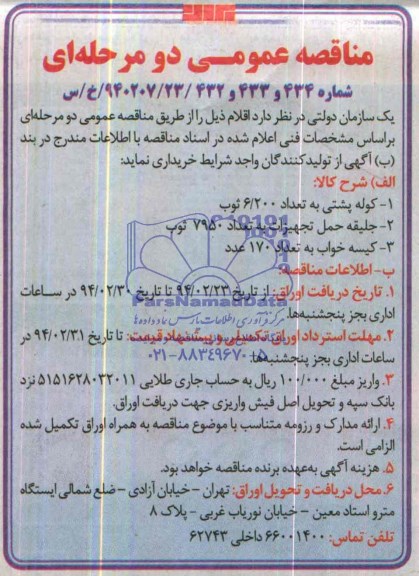 مناقصه عمومی دو مرحله‌ای
شماره ۴۳۴ و ۴۳۳ و ۴۳۲ /۹۴۰۲۰۷/۲۳/خ/س
یک سازمان دولتی در نظر دارد اقلام ذیل را از طریق مناقصه عمومی دو مرحله‌ای
براساس مشخصات فنی اعلام شده در اسناد مناقصه با اطلاعات مندرج در بند
(ب) آگهی از تولیدکنندگان واجد شرایط خریداری نماید:
الف) شرح کالا:
۱- کوله پشتی به تعداد ۶/۲۰۰ ثوب
۲- جلیقه حمل تجهیزات به تعداد ۷۹۵۰ ثوب
۳- کیسه خواب به تعداد ۱۷۰ عدد
ب- اطلاعات مناقصه:
۱. تاریخ دریافت اوراق: از تاریخ ۹۴/۰۲/۲۳ تا تاریخ ۹۴/۰۲/۳۰ در ساعات
ParsNamadData
اداری بجز پنجشنبه‌ها.
مرکز فرآوری اطلاعات پارس نماد داده‌ها
۲. مهلت استرداد اوراق تکمیلی و پیشنهاد قیمت: تا تاریخ ۹۴/۰۲/۳۱ در
ساعات اداری بجز پنجشنبه‌ها.
۰۲۱-۸۸۳۴۹۶۷۰-۵
۳. واریز مبلغ ۱۰۰/۰۰۰ ریال به حساب جاری طلایی ۵۱۵۱۶۲۸۰۳۲۰۱۱ نزد
بانک سپه و تحویل اصل فیش واریزی جهت دریافت اوراق.
۴. ارائه مدارک و رزومه متناسب با موضوع مناقصه به همراه اوراق تکمیل شده
الزامی است.
۵. هزینه آگهی به‌عهده برنده مناقصه خواهد بود.
۶. محل دریافت و تحویل اوراق: تهران - خیابان آزادی - ضلع شمالی ایستگاه
مترو استاد معین - خیابان نوریاب غربی - پلاک ۸
تلفن تماس: ۶۶۰۰۱۴۰۰ داخلی ۶۲۷۴۳